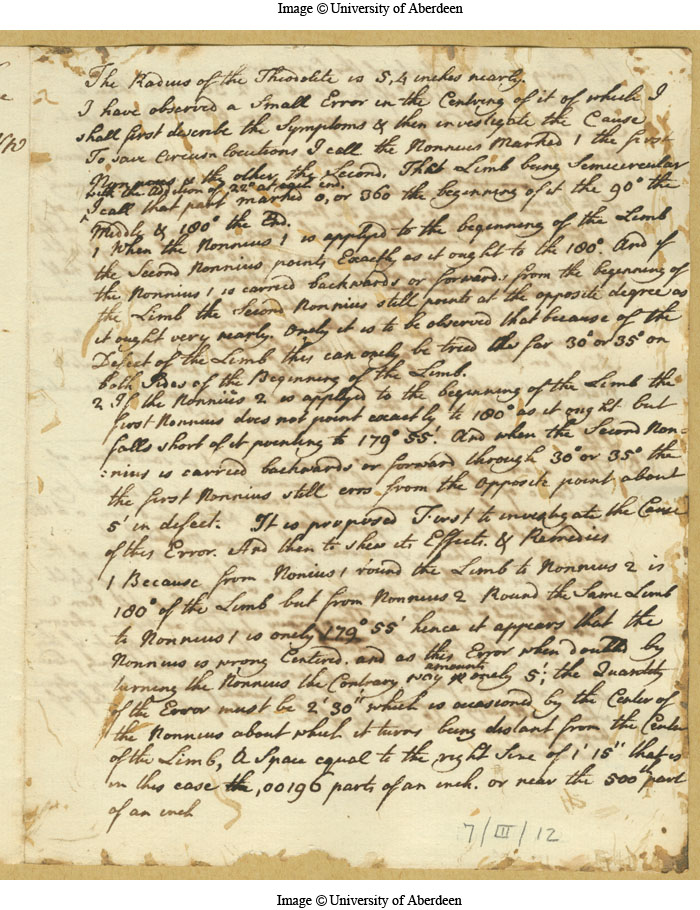 Image © University of Aberdeen
The Radius of the Theodolite is 5,4 inches nearly.
I have observed a Small Error in the Centring of it of which I
shall first describe the Symptoms & then investigate the Cause
To save circumlocutions I call the Nonneus Marked 1 the first
Nonneus & the other the Second. That Limb being Semicircular
with the addition of 22° at each end.
I call that part marked 0, or 360 the beginning of it the 90° the
Middle & 180° the End.
1 When the Nonnius 1 is applyed to the beginning of the Limb
the Second Nonnius points Exactly as it ought to the 180°. And if
the Nonnius 1 is carried backwards or forwards from the beginning of
the Limb the Second Nonnius still points at the opposite degree as
it ought very nearly. Onely it is to be observed that because of the
Defect of the Limb this can onely be tried for 30° or 35° on
both sides of the Beginning of the Limb.
2 If the Nonnius 2 is applyed to the beginning of the Limb the
first Nonnius does not point exactly to 180° as it ought but
falls short of it pointing to 179° 55'. And when the Second Non-
:nius is carried backwards or forward through 30° or 35° the
the first Nonnius still errs from the Opposite point about
5' in defect. It is proposed First to investigate the Cause
of this Error. And then to shew its Effects & Remedies
1 Because from Nonius 1 round the Limb to Nonneus 2 is
180° of the Limb but from Nonneus 2 Round the Same Limb
to Nonneus 1 is onely 179° 55' hence it appears that the
Nonneus is wrong Centered. and as this Error when doubled by
turning the Nonneus the Contrary way amounts onely 5'; the Quantity
of the Error must be 2' 30" which is occasioned by the Center of
the Nonneus about which it turns being distant from the Center
of the Limb, A Space equal to the right Sine of 1' 15" that is
in this case the ,00196 parts of an inch. or near the 500th part
of an inch
7/III/12
Image © University of Aberdeen